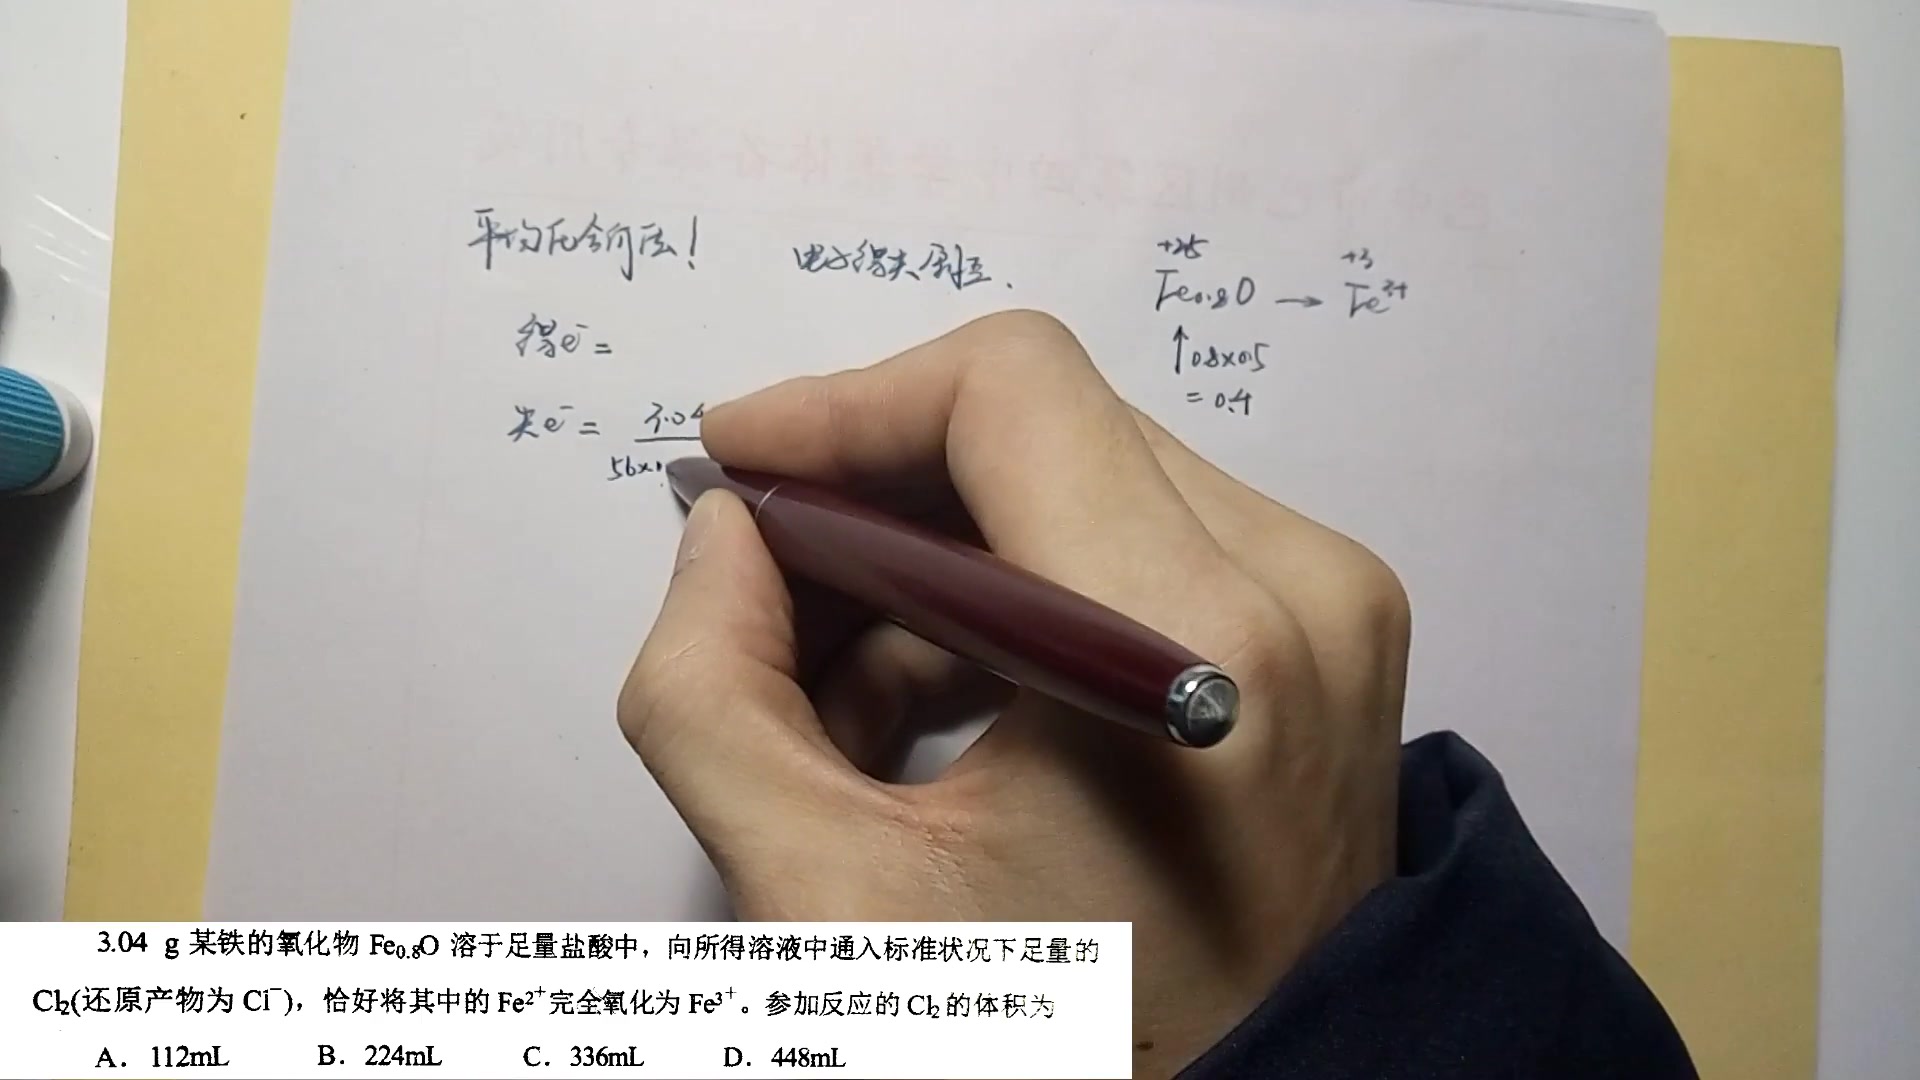 平均化合价法!
电子得失守恒.
+2.5
+3
Fe0.8O → Fe3+
↑0.8×0.5
= 0.4
得e- =
失e- = 3.04
56×
3.04 g 某铁的氧化物 Fe0.8O 溶于足量盐酸中，向所得溶液中通入标准状况下足量的
Cl2(还原产物为 Cl-)，恰好将其中的 Fe2+完全氧化为 Fe3+。参加反应的 Cl2 的体积为
A. 112mL B. 224mL C. 336mL D. 448mL